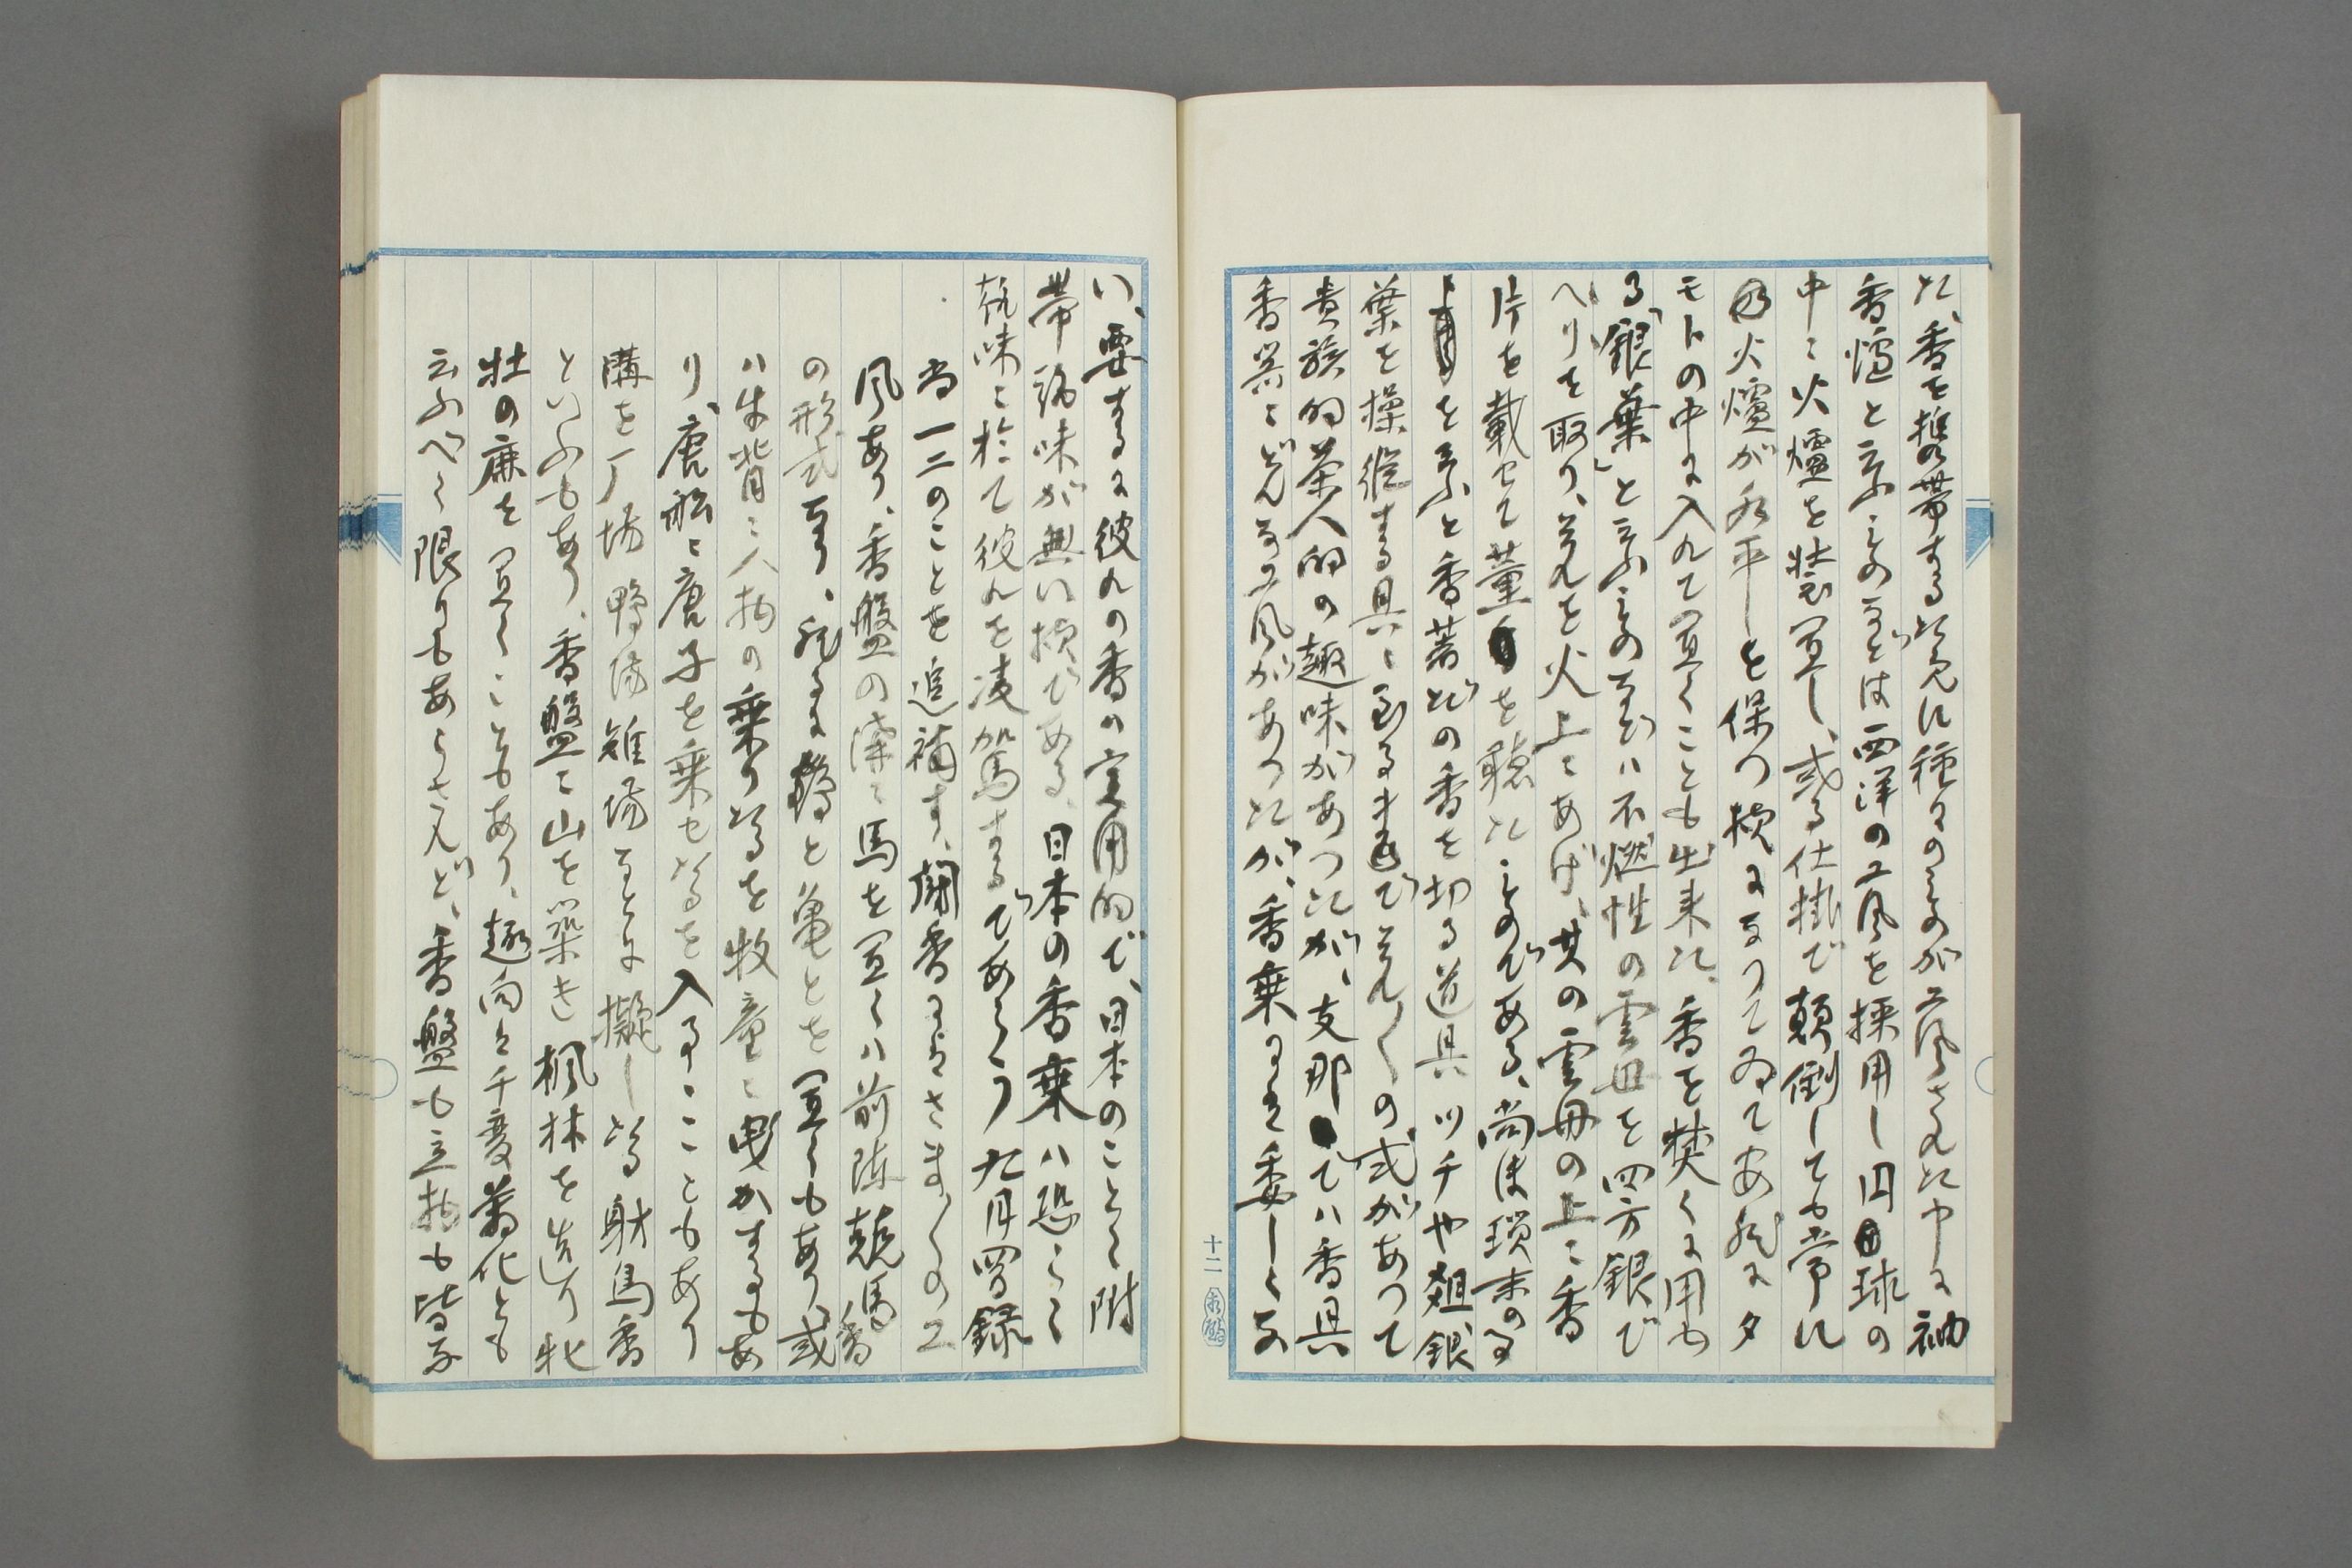 た、香を携帯する為めに種々のものが工風された中に袖
香爐と云ふものなどは西洋の工風を採用し円球の
中に火爐を装置し、或る仕掛で顛倒しても常に
火爐が水平を保つ様になつてゐて安然にタ
モトの中に入れて置くことも出来た、香を焚くに用ゐ
る「銀葉」と云ふものなどハ不燃性の雲母を四方銀で
へりを取り、それを火上にあげ、其の雲母の上に香
片を載せて薫を聴たものである、尚ほ瑣末のる
を云ふと香箸だの香を切る道具ツチや爼銀
葉を操縦する具に到るまでそれ〱の式があつて
貴族的茶人的の趣味があつたが、支那でハ香具
香器にどんな工風があつたか、香乗にハ委しくな
い、要するに彼れの香ハ実用的で、日本のことく附
帯的味が無い様である、日本の香乗ハ恐らく
茲味に於て彼れを凌駕するであらう 九月四日録
尚一二のことを追補す、聞香にハさま〲の工
風あり、香盤の溝に馬を置くハ前陳競馬香
の形式なり、然るに鶴と亀とを置くもあり、或
ハ牛背に人物の乗り居るを牧童に曳かするもあ
り、唐船に唐子を乗せ居るを入るゝこともあり
溝を一ノ場鴨場雉場などに擬し居る射鳥香
といふもあり、香盤に山を築き楓林を造り牝
牡の鹿を置くこともあり、趣向は千変萬化とも
云ふべく限りもあらされど、香盤も立物も皆な
十二